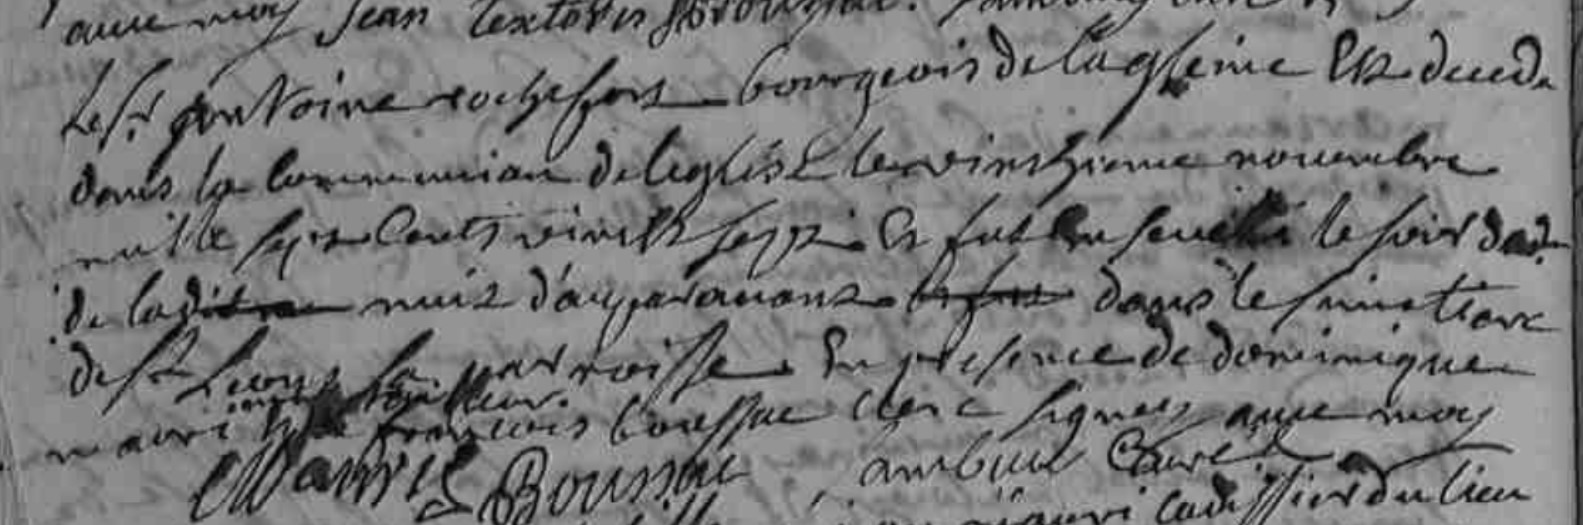 avec moy Jean textoris
Le sr antoine rochefort bourgeois de laglenie Est decede
dans la Communion de leglise le vintzieme novembre
mille sept Cents vinct sept Et fut Enseveli le soir dud.
de lad nuit d'auparavant dans le simetiere
de st Leons sa parroisse En presence de dominique
mauri tailleur francois boussac clerc signes avec moy
Mauri Boussac Curé
cadissier du lieu